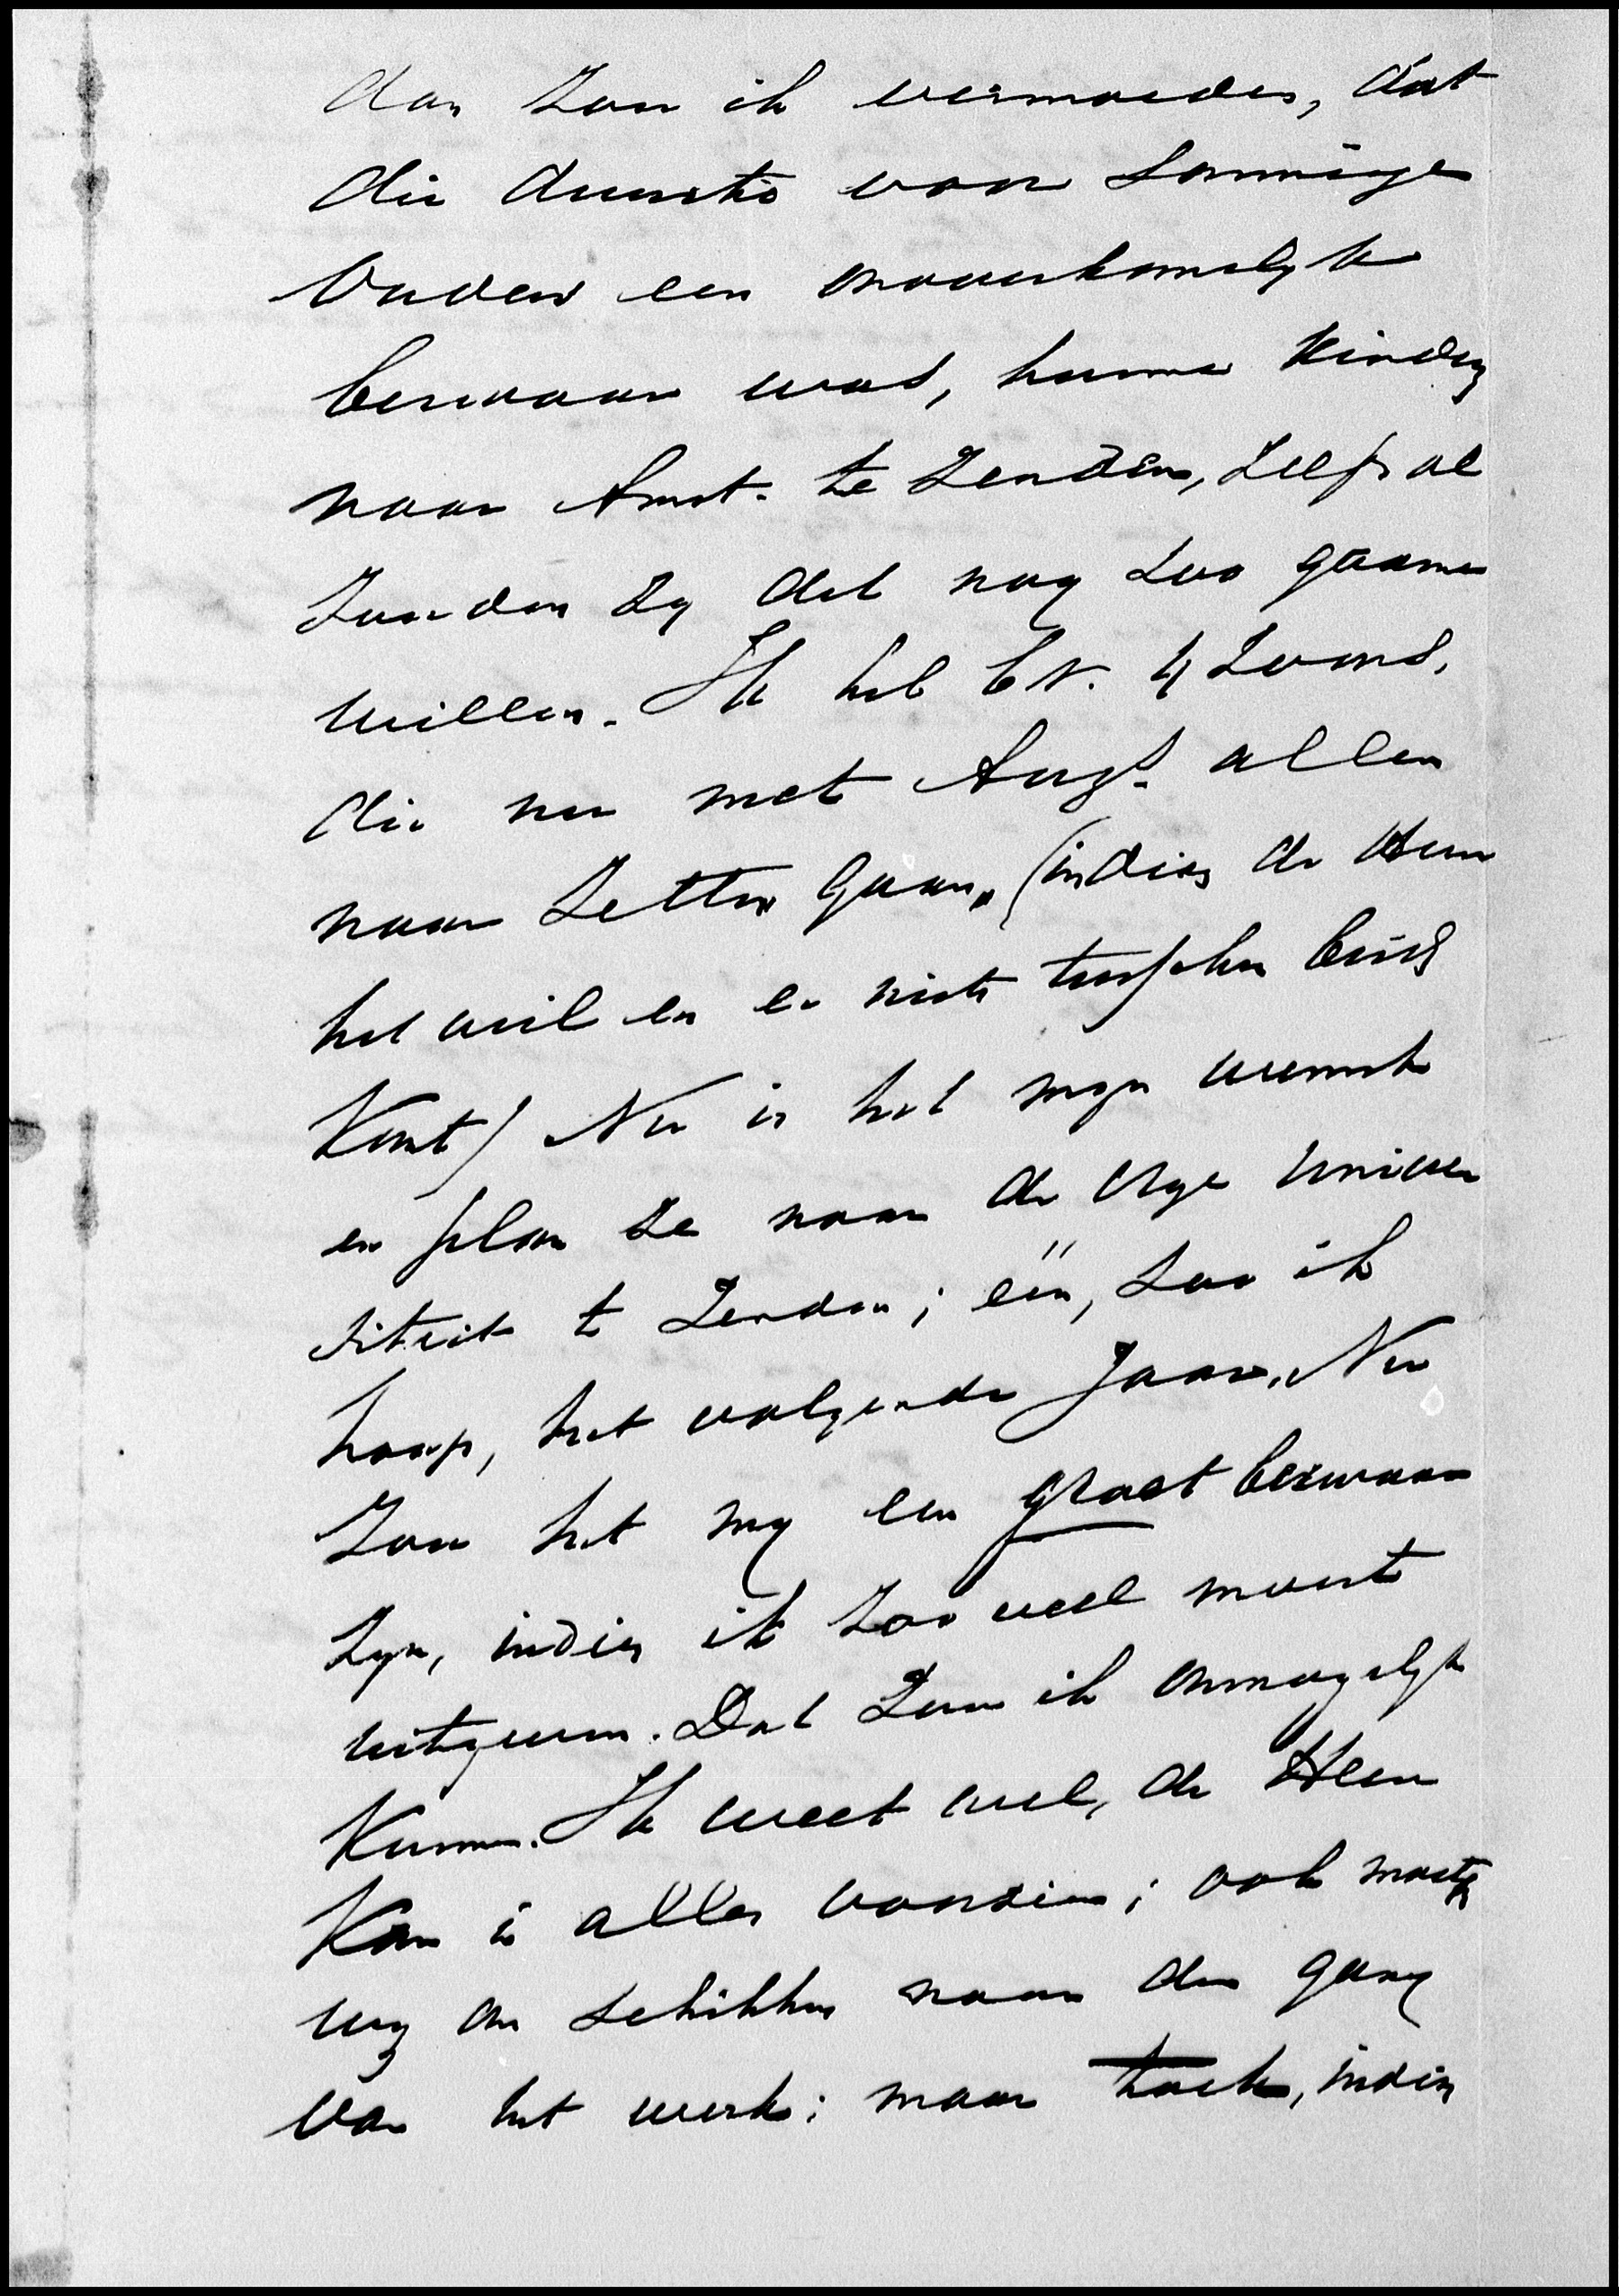 dan zou ik vermoeden, dat
die duurte voor sommige
Ouders een onoverkomelyk
bezwaar was, hunne kinderen
naar Amst. te zenden, zelfs al
zouden zy dat nog zoo gaarne
willen. Ik heb bv. 4 zoons,
die nu met Augs. allen
naar Zetten gaan, (indien de Heer
het wil en er niets tusschen beids
komt) Nu is het myn wensch
en plan ze naar de Vrye Univer
siteit te zenden; één, zoo ik
hoop, het volgende jaar. Nu
zou het my een groot bezwaar
zyn, indien ik zooveel moest
uitgeven. Dat zou ik onmogelyk
kunnen. Ik weet wel, de Heer
kan in alles voorzien; ook moeten
wy ons schikken naar den gang
van het werk; maar toch, indien